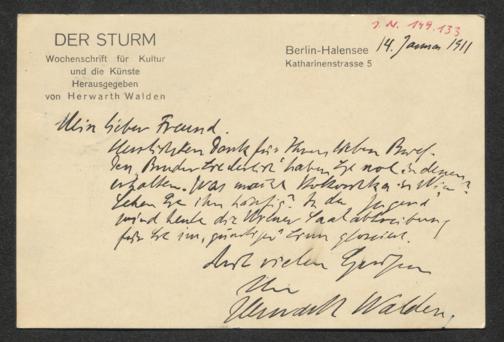 J. N. 149.133
DER STURM
Wochenschrift für Kultur
und die Künste
Herausgegeben
von Herwarth Walden
Berlin-Halensee
Katharinenstrasse 5
14. Januar 1911
Mein lieber Freund.
Herzlichsten Dank für Ihren lieben Brief.
Den haben Sie
erhalten. Was macht Kokoschka in Wien?
Sehen Sie ihn häufig? In der „Jugend“
wird heute die Wiener
für Sie im „günstigen“ Sinn glossiert.
Mit vielen Grüßen
Ihr
Herwarth Walden.